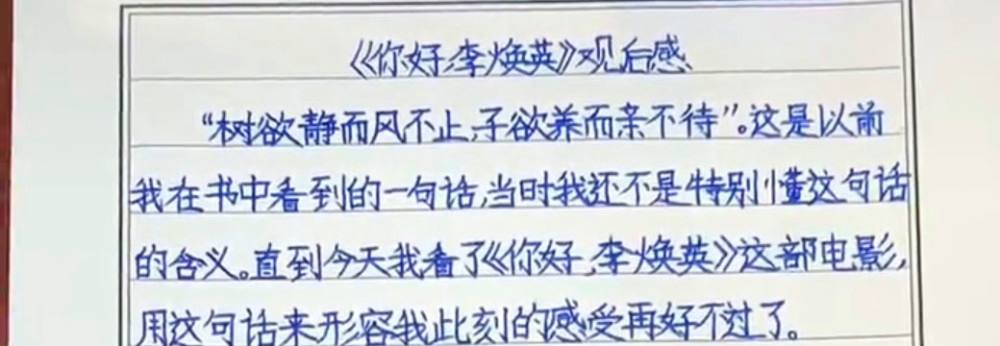 《你好,李焕英》观后感
“树欲静而风不止,子欲养而亲不待”。这是以前
我在书中看到的一句话,当时我还不是特别懂这句话
的含义。直到今天我看了《你好,李焕英》这部电影,
用这句话来形容我此刻的感受再好不过了。